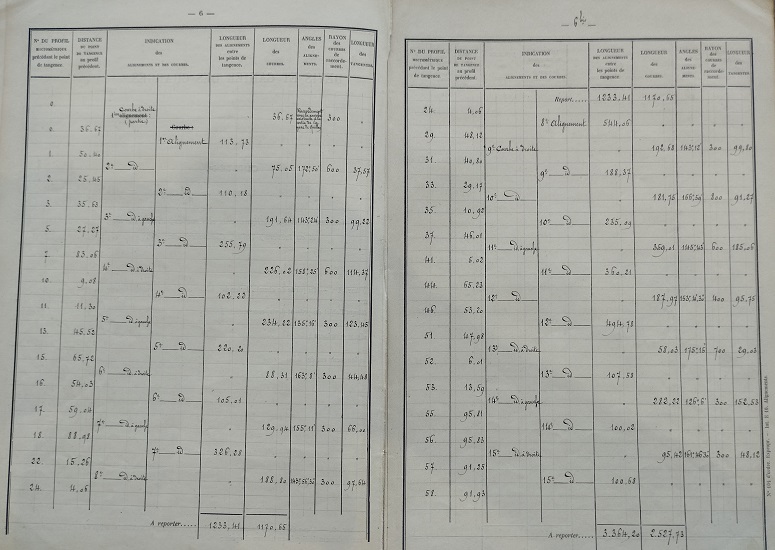 — 6 —
N° DU PROFIL kilométrique précédant le point de tangence. | DISTANCE DU POINT DE TANGENCE au profil précédent. | INDICATION des ALIGNEMENTS ET DES COURBES. | LONGUEUR DES ALIGNEMENTS entre les points de tangence. | LONGUEUR des COURBES. | ANGLES des ALIGNEMENTS. | RAYON des COURBES de raccordement. | LONGUEUR des TANGENTES.
0. | | Courbe à Droite 1ère (partie) | | 36.67 | | 300 | "
0. | 36.67 | 1er Alignement | 113.73 | " | " | " | "
1. | 50.40 | 2e d° | " | 75.05 | 172°50' | 600 | 37.57
2. | 25.45 | 2e d° | 110.18 | " | " | " | "
3. | 35.63 | 3e d° à gauche | " | 191.64 | 143°24' | 300 | 99.22
5. | 27.27 | 3e d° | 255.79 | " | " | " | "
7. | 83.06 | 4e d° à Droite | " | 226.02 | 158°25' | 600 | 114.37
10. | 9.08 | 4e d° | 102.22 | " | " | " | "
11. | 11.30 | 5e d° à gauche | " | 234.22 | 135°16' | 300 | 123.45
13. | 45.52 | 5e d° | 220.20 | " | " | " | "
15. | 65.72 | 6e d° à Droite | " | 88.31 | 163°8' | 300 | 44.48
16. | 54.03 | 6e d° | 105.01 | " | " | " | "
17. | 59.04 | 7e d° à gauche | " | 129.94 | 155°11' | 300 | 66.00
18. | 88.98 | 7e d° | 326.28 | " | " | " | "
22. | 15.26 | 8e d° à Droite | " | 188.80 | | 300 | 97.64
24. | 4.06
A reporter..... 1233.41 | 1170.65
N° DU PROFIL kilométrique précédant le point de tangence. | DISTANCE DU POINT DE TANGENCE au profil précédent. | INDICATION des ALIGNEMENTS ET DES COURBES. | LONGUEUR DES ALIGNEMENTS entre les points de tangence. | LONGUEUR des COURBES. | ANGLES des ALIGNEMENTS. | RAYON des COURBES de raccordement. | LONGUEUR des TANGENTES.
Report..... 1233.41 | 1170.65
24. | 4.06 | 8e Alignement | 544.06 | " | " | " | "
29. | 48.12 | 9e Courbe à Droite | " | 192.68 | 143°12' | 300 | 99.80
31. | 40.80 | 9e d° | 188.37 | " | " | " | "
33. | 29.17 | 10e d° | " | 181.75 | | | 91.27
35. | 10.92 | 10e d° | 235.09 | " | " | " | "
37. | 46.01 | 11e d° à gauche | " | 359.01 | 145°45' | 600 | 185.06
41. | 5.02 | 11e d° | 360.21 | " | " | " | "
44. | 65.23 | 12e d° | " | 187.97 | | 400 | 95.75
46. | 53.20 | 12e d° | 494.78 | " | " | " | "
51. | 47.98 | 13e d° à Droite | " | 58.03 | 175°15' | 700 | 29.03
52. | 6.01 | 13e d° | 107.58 | " | " | " | "
53. | 13.59 | 14e d° à gauche | " | 282.22 | 126°6' | 300 | 152.53
55. | 95.81 | 14e d° | 100.02 | " | " | " | "
56. | 95.83 | 15e d° à Droite | " | 95.42 | | 300 | 48.12
57. | 91.25 | 15e d° | 100.68 | " | " | " | "
58. | 91.93
A reporter..... 3.364,20 | 2.527,73